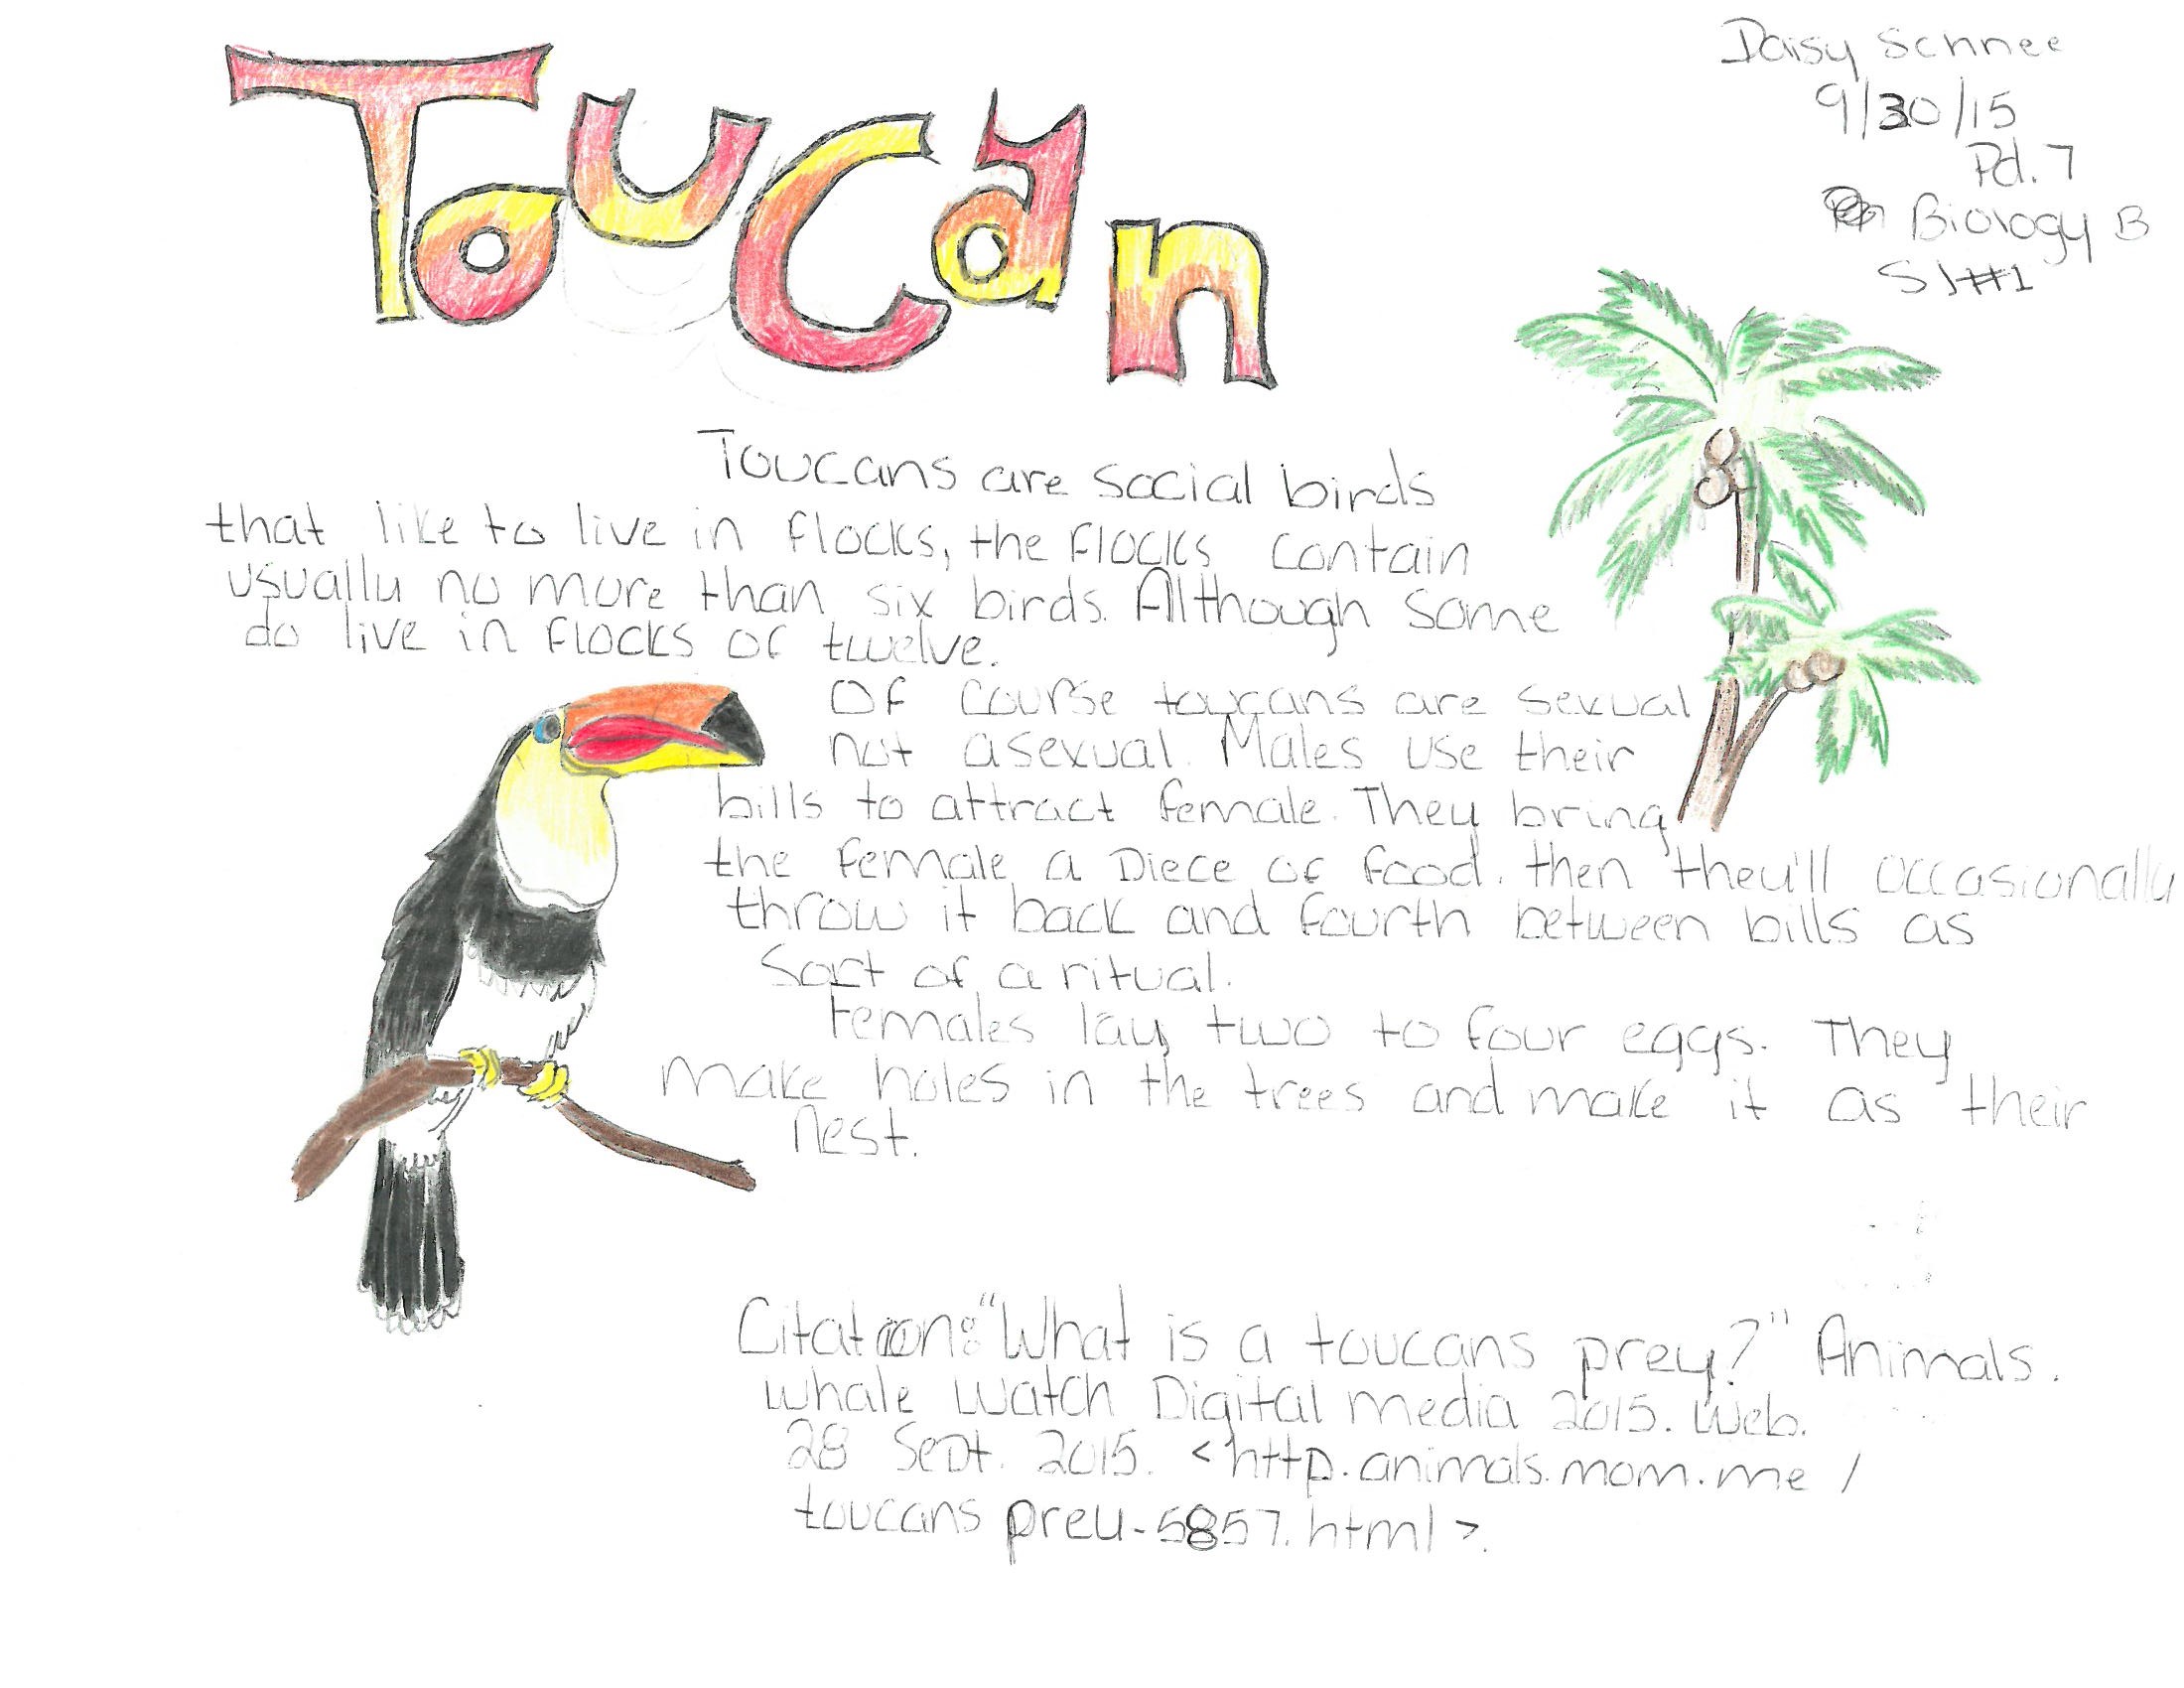 Toucan
Daisy Schnee
9/30/15
Pd. 7
Biology B
S1#1
Toucans are social birds
that like to live in flocks, the flocks contain
usually no more than six birds. Although some
do live in flocks of twelve.
Of course toucans are sexual
not asexual. Males use their
bills to attract female. They bring
the female a piece of food. then they'll occasionally
throw it back and fourth between bills as
sort of a ritual.
Females lay two to four eggs. They
make holes in the trees and make it as their
nest.
Citation: "What is a toucans prey?" Animals.
whale watch Digital media 2015. Web.
28 Sept. 2015. <http.animals.mom.me/
toucans prey-5857.html>.